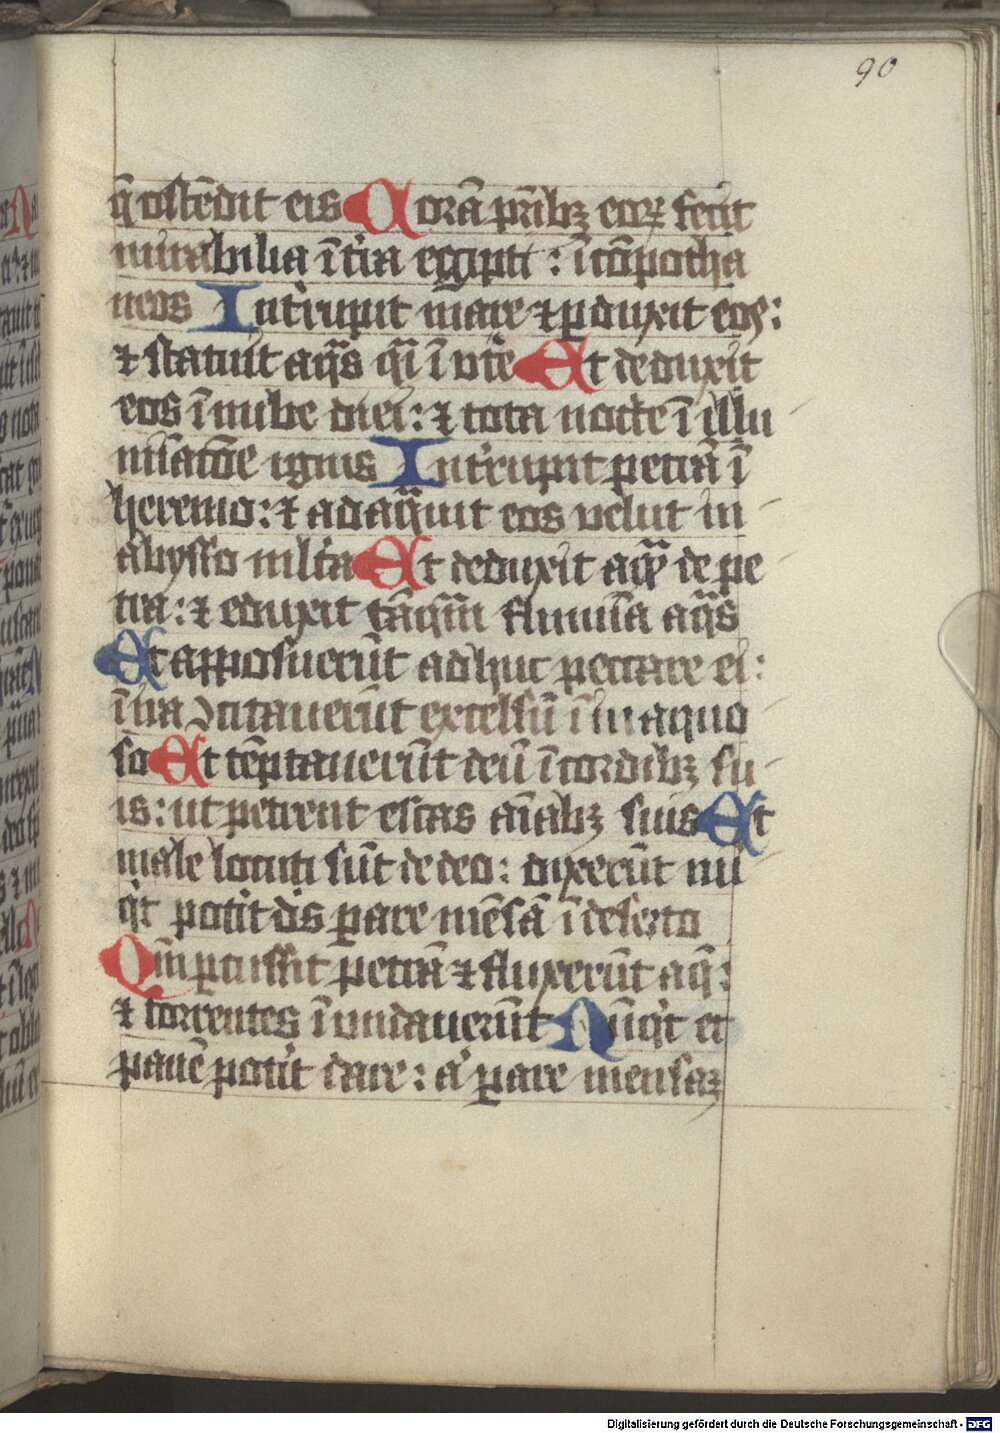 90
q̄ ostēdit eis Corā pr̄ibꝫ eoꝝ fecit
mirabilia ī t̄ra egipti : ī cāpo tha
neos Int̄rupit mare ⁊ ꝑduxit eos:
⁊ statuit aq̄s q̄i ī utre Et deduxit
eos ī nube diei: ⁊ tota nocte ī illu
mīatōe ignis Int̄rupit petrā ī
heremo: ⁊ adaq̄uit eos velut in
abysso mlta Et deduxit aq̄ de pe
tra: ⁊ eduxit tāq̄m flumīa aq̄s
Et apposuerūt adhuc peccare ei:
ī ira ꝯcitauerūt excelsū ī inaquo
so Et tēptauerūt deū ī cordibꝫ su
is: ut peterent escas aīabꝫ suis Et
male locuti sūt de deo: dixerūt nū
qͥt potit ds̄ pare mēsā ī deserto
Qm̄ ꝑcussit petrā ⁊ fluxerūt aq̄:
⁊ torrentes īundauerūt Nūqͥt et
panē potit dare: aͭ pare mensaꝫ
Digitalisierung gefördert durch die Deutsche Forschungsgemeinschaft - DFG